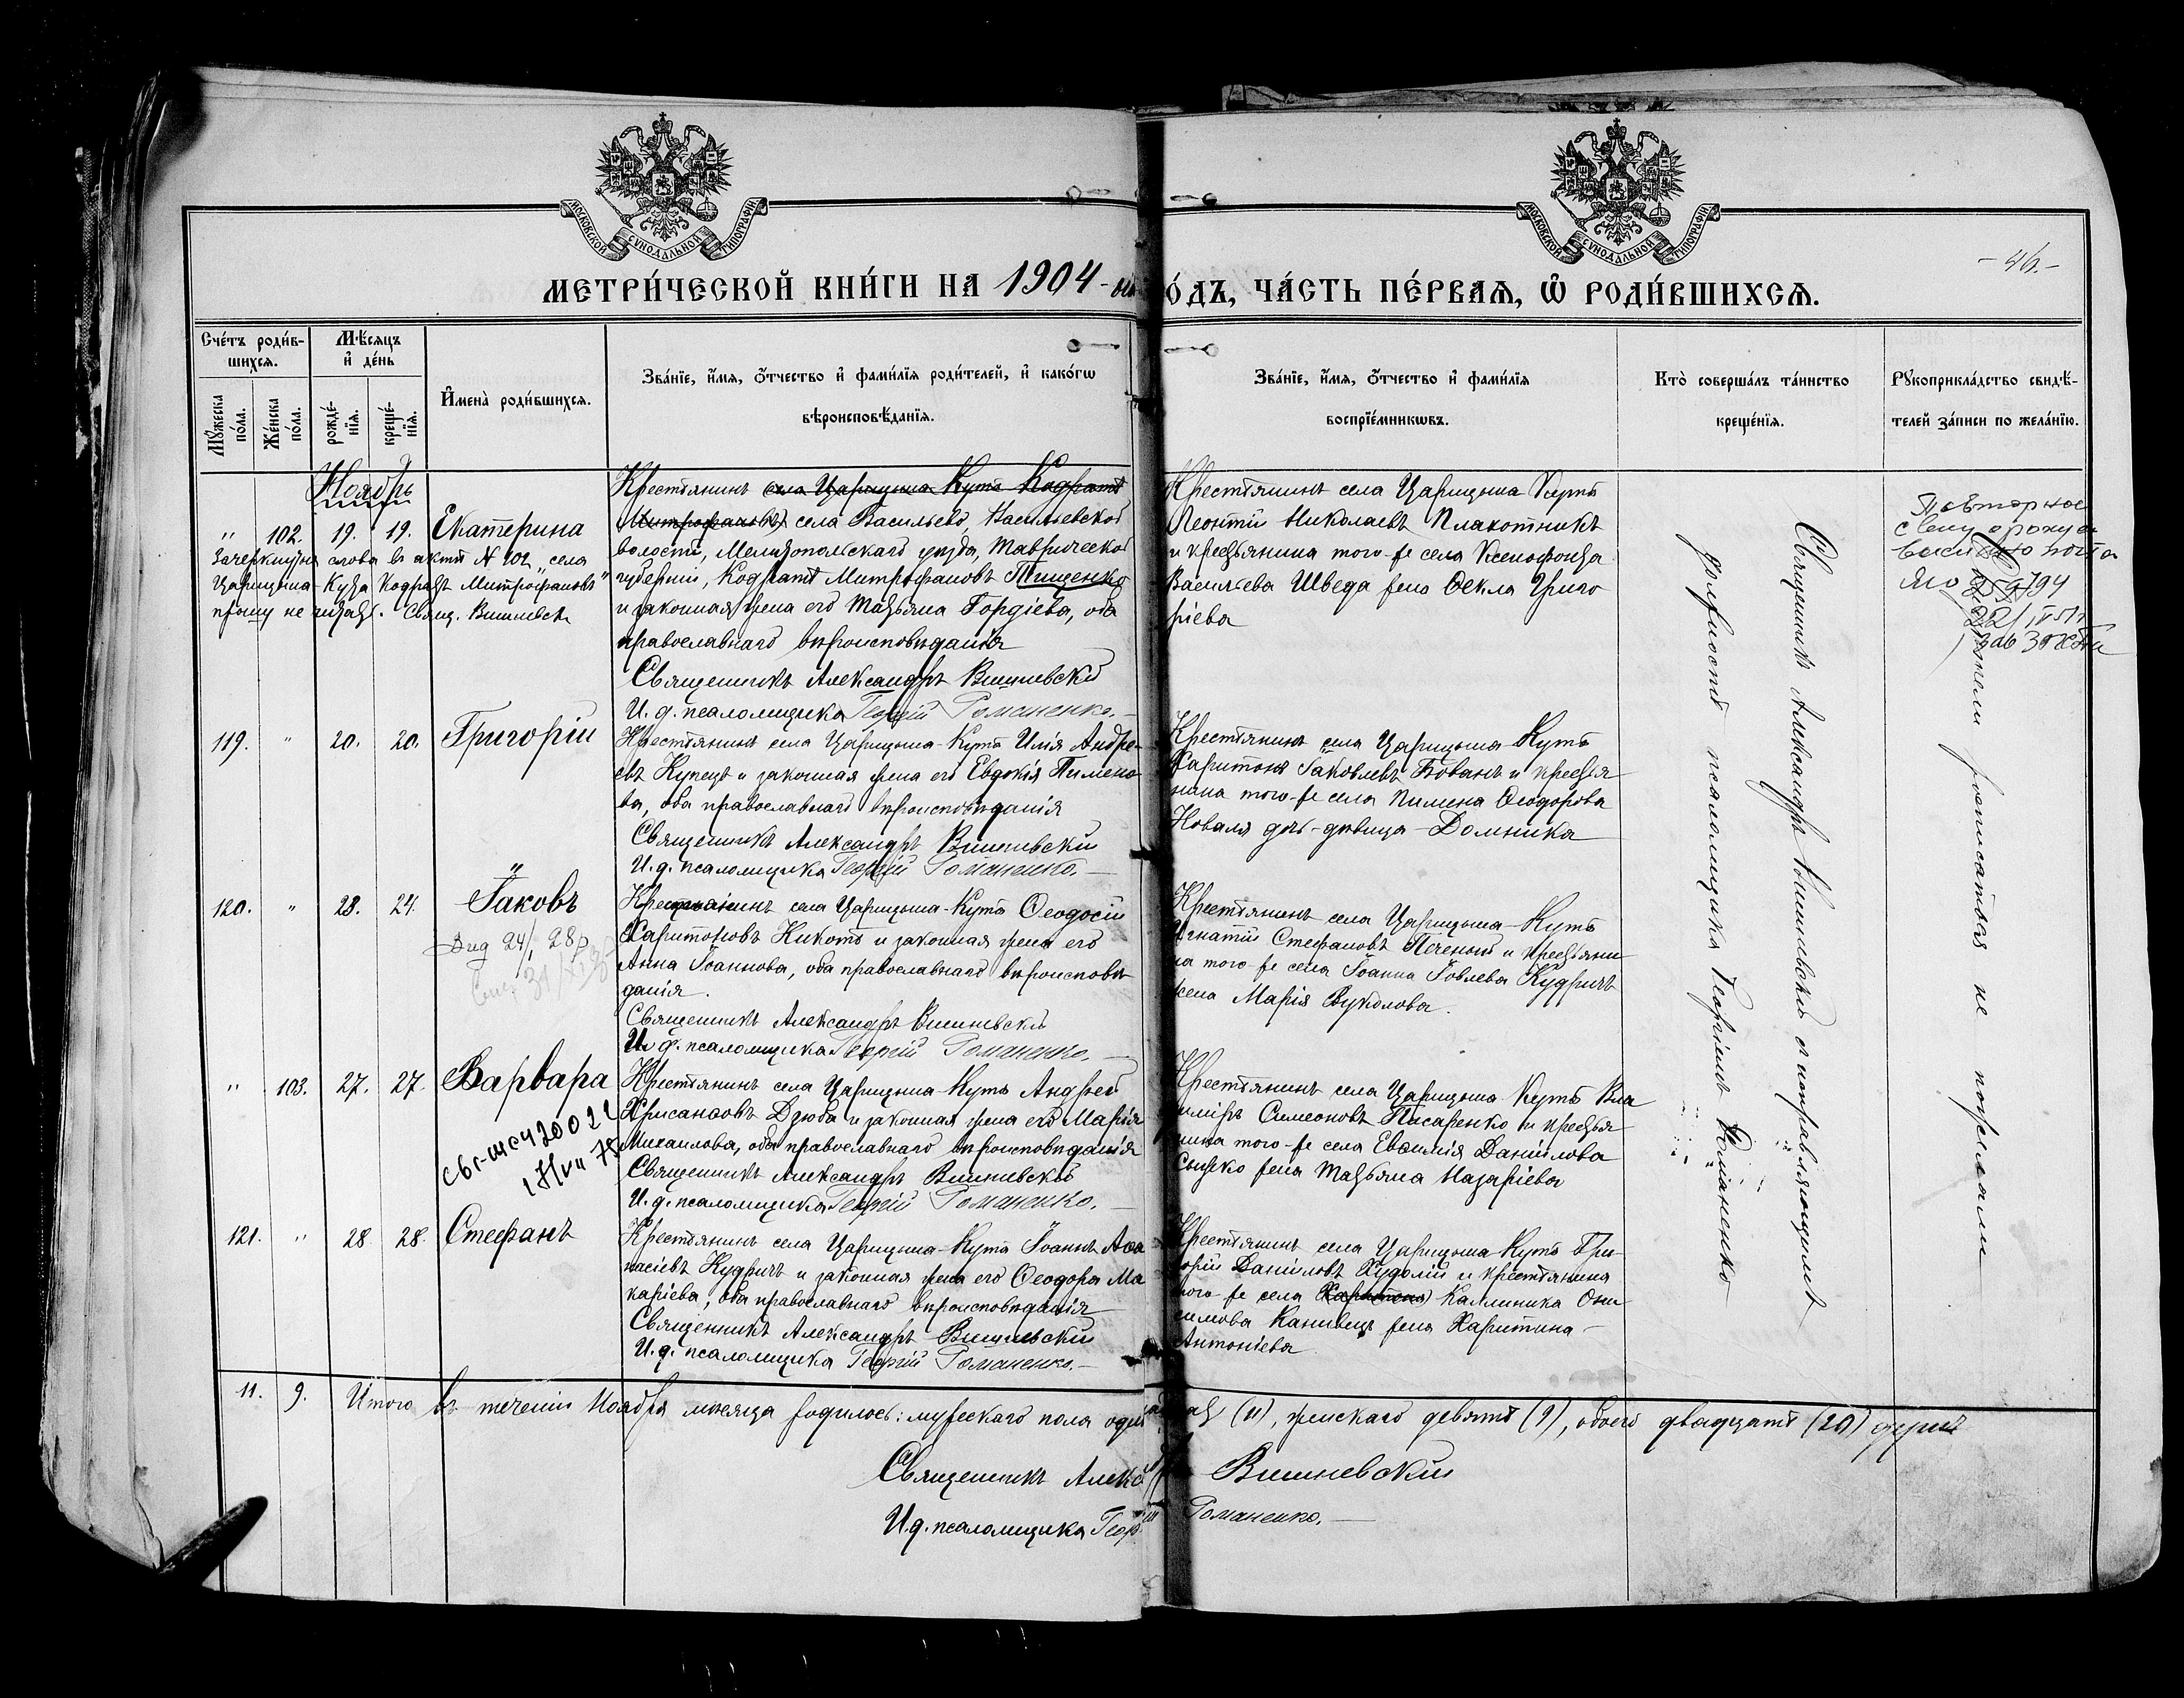 МОСКОВСКОЙ СѴНОДАЛЬНОЙ ТИПОГРАФІИ
МОСКОВСКОЙ СѴНОДАЛЬНОЙ ТИПОГРАФІИ
МЕТРИ́ЧЕСКОЙ КНИ́ГИ НА 1904
О́ДЪ, ЧА́СТЬ ПЕ́РВАѦ, Ѽ РОДИ́ВШИХСѦ.
-46.-
Сче́тъ роди́в-
шихсѧ.
Мꙋ́жеска по́ла.
Же́нска по́ла.
Мѣ́сѧцъ
и҆ де́нь
рожде́-
нїѧ.
креще́-
нїѧ.
И҆мена̀ роди́вшихсѧ.
Зва́нїе, и҆́мѧ, ѻ҆́тчество и҆ фами́лїѧ роди́телей, и҆ како́гѡ
вѣроисповѣ́данїѧ.
Зва́нїе, и҆́мѧ, ѻ҆́тчество и҆ фами́лїѧ
воспрїе́мникѡвъ.
Кто̀ соверша́лъ та́инство
креще́нїѧ.
Рꙋкоприкла́дство свидѣ́-
телей за́писи по жела́нїю.
Ноябрь
" 102. 19. 19. Екатерина
Зачеркнутыя слова въ актѣ № 102 "села
Царицына-Кута Кодратъ Митрофановъ"
прошу не читать. Свящ. Вишневскій
Крестьянинъ села Царицына Кута Кодратъ
Митрофановъ села Васильево, Васильевской
волости, Мелитопольскаго уѣзда, Таврической
губерніи, Кодратъ Митрофановъ Тищенко
и законная жена его Татьяна Гордіева, оба
православнаго вѣроисповѣданія
Священникъ Александръ Вишневскій
И. д. псаломщика Георгій Романенко.
Крестьянинъ села Царицына Кута
Леонтій Николаевъ Плахотникъ
и крестьянина того-же села Ксенофонта
Васильева Шведа жена Ѳекла Григо
ріева
Повторное
119. " 20. 20. Григорій
Крестьянинъ села Царицына-Кута Илія Андре-
евъ Купецъ и законная жена его Евдокія Пимено-
ва, оба православнаго вѣроисповѣданія
Священникъ Александръ Вишневскій
И. д. псаломщика Георгій Романенко.
Крестьянинъ села Царицына-Кута
Харитонъ Іаковлевъ Бованъ и крестья
нина того-же села Пимена Ѳеодорова
Коваля дочь-дѣвица-Домника
120. " 23. 24. Іаковъ
Крестьянинъ села Царицына-Кута Ѳеодосій
Харитоновъ Кикоть и законная жена его
Анна Іоаннова, оба православнаго вѣроисповѣ
данія.
Священникъ Александръ Вишневскій
И. д. псаломщика Георгій Романенко.
Крестьянинъ села Царицына-Кута
Игнатій Стефановъ Печеный и крестьяни
на того-же села Іоанна Іовлева Кудричъ
жена Марія Вуколова.
" 103. 27. 27. Варвара
Крестьянинъ села Царицына-Кута Андрей
Хрисанѳовъ Дзюба и законная жена его Марія
Михаилова, оба православнаго вѣроисповѣданія
Священникъ Александръ Вишневскій
И. д. псаломщика Георгій Романенко.
Крестьянинъ села Царицына Кута Вла
диміръ Симеоновъ Писаренко и крестья
нина того-же села Евѳимія Даніилова
жена Татьяна Назаріева
121. " 28 28. Стефанъ
Крестьянинъ села Царицына-Кута Іоаннъ Аѳа
насіевъ Кудричъ и законная жена его Ѳеодора Ма
каріева, оба православнаго вѣроисповѣданія
Священникъ Александръ Вишневскій
И. д. псаломщика Георгій Романенко.
Крестьянинъ села Царицына-Кута Гри-
горій Даніиловъ Худолій и крестьянина
того-же села Харитона Каллиника Они
симова Канивецъ жена Харитина
Антоніева
Священникъ Александръ Вишневскій и исправляющимъ
должность псаломщика Георгіемъ Романенко
росписаться не пожелали
11. 9. Итого въ теченіи Ноября мѣсяца родилось: мужескаго пола одиннадцать (11), женскаго девять (9), обоего двадцать (20) душъ
Священникъ Александръ Вишневскій
И. д. псаломщика Георгій Романенко.